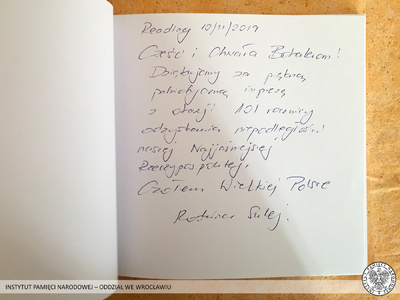 Reading 10/11/2019
Cześć i Chwała Bohaterom!
Dziękujemy za piękną
patriotyczną imprezę
z okazji 101 rocznicy
odzyskania niepodległości
naszej Najjaśniejszej
Rzeczypospolitej.
Czołem Wielkiej Polsce
Rodzina
INSTYTUT PAMIĘCI NARODOWEJ – ODDZIAŁ WE WROCŁAWIU